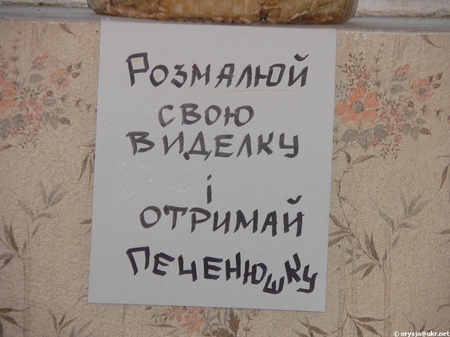 РОЗМАЛЮЙ
СВОЮ
ВИДЕЛКУ
і
ОТРИМАЙ
ПЕЧЕНЮШКУ
© orysja@ukr.net